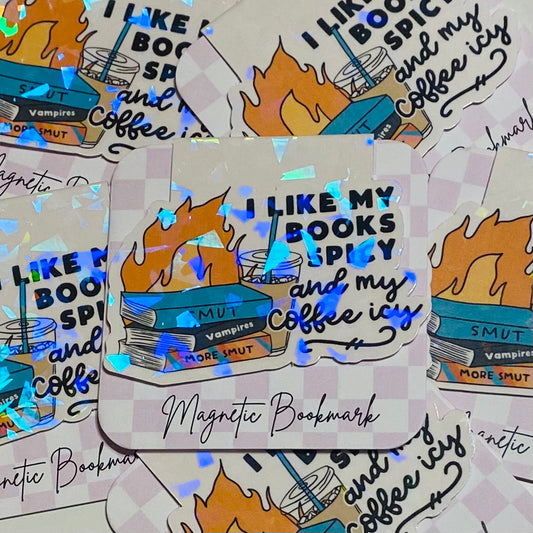 I LIKE MY
BOOKS
SPICY
and my
coffee icy
SMUT
Vampires
MORE SMUT
Magnetic Bookmark
I LIKE MY
BOOK
SPICY
and my
coffee icy
SMUT
Vampires
MORE SMUT
Magnetic B
I LIKE
BOOKS
SPIC
and my
coffee icy
Bookmark
I LIKE M
BOO
SPI
and
coffe
netic Bookma
SMUT
Vampires
MORE SMUT
gnetic
and my
coffee icy